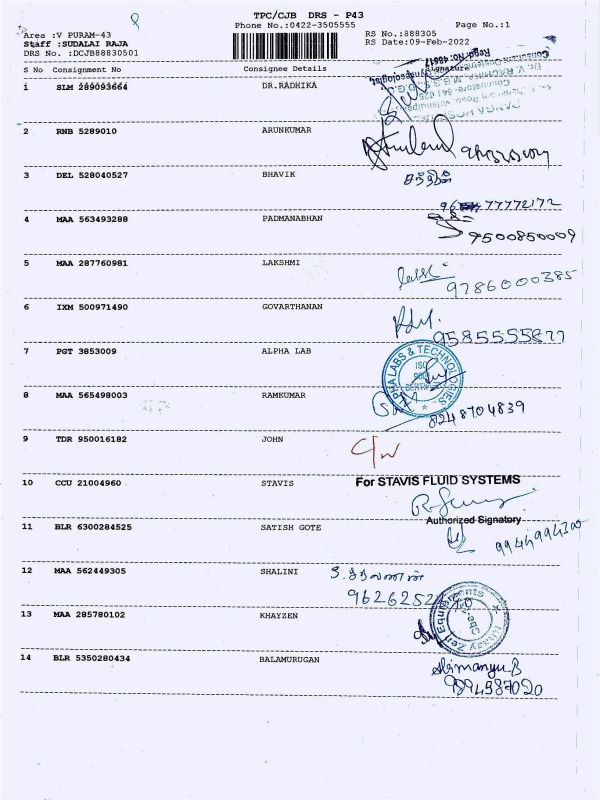 TPC/CJB DRS - P43
Area :V PURAM-43 Phone No.:0422-3505555 Page No.:1
Staff :SUDALAI RAJA RS No.:888305
DRS No. :DCJB88830501 RS Date:09-Feb-2022
S No Consignment No Consignee Details Signature
1 SLM 289093664 DR.RADHIKA
2 RNB 5289010 ARUNKUMAR
3 DEL 528040527 BHAVIK
77772172
4 MAA 563493288 PADMANABHAN
9500850009
5 MAA 287760981 LAKSHMI
9786000385
6 IXM 500971490 GOVARTHANAN
7 PGT 3853009 ALPHA LAB
ALPHA LABS & TECHNOLOGIES
ISO
8 MAA 565498003 RAMKUMAR
8248704839
9 TDR 950016182 JOHN
C/w
10 CCU 21004960 STAVIS For STAVIS FLUID SYSTEMS
Authorized Signatory
11 BLR 6300284525 SATISH GOTE
9944994300
12 MAA 562449305 SHALINI
13 MAA 285780102 KHAYZEN
14 BLR 5350280434 BALAMURUGAN
Abimanyu B
9894987020